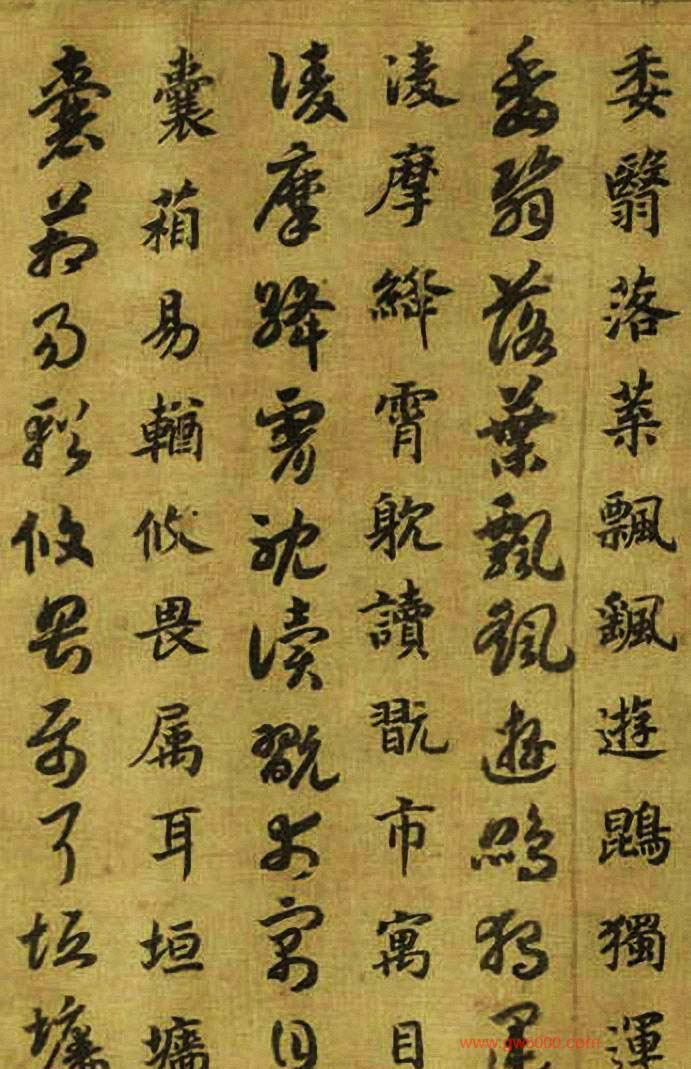 委翳落葉飄颻遊鵾獨運
委翳落葉飄颻遊鵾獨運
凌摩絳霄躭讀翫市寓目
凌摩絳霄躭讀翫市寓目
囊葙易輶攸畏属耳垣墻
囊葙易輶攸畏属耳垣墻
www.gw6000.com